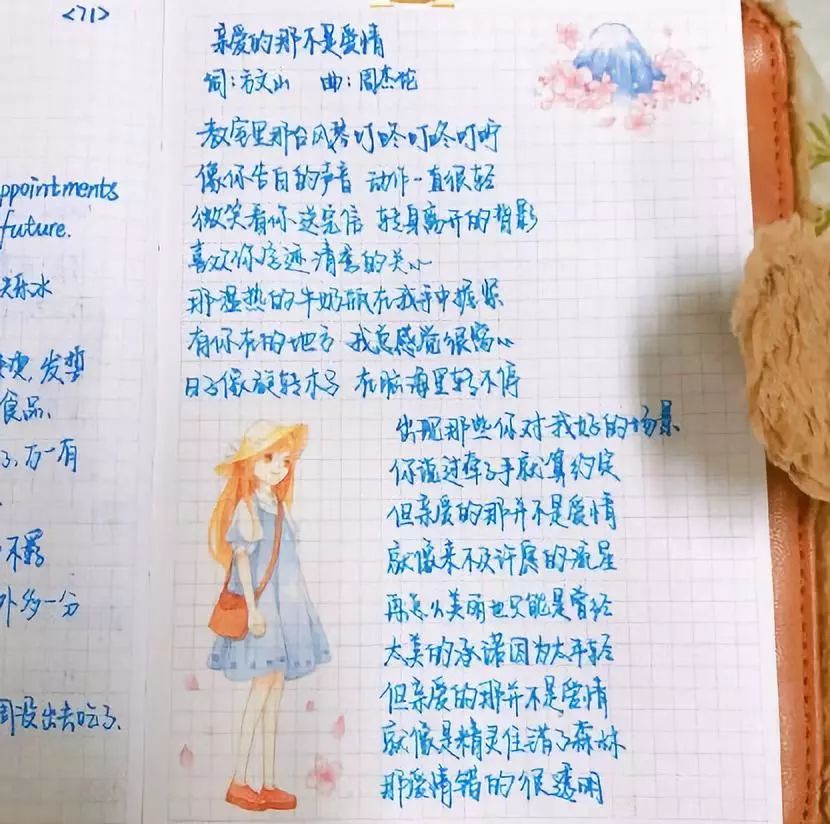 <71>
ppointments
future.
乐水
发型
食品、
了,万一有
不羁
外多一分
周没出去吃了、
亲爱的那不是爱情
词:方文山 曲:周杰伦
教室里那台风琴叮咚叮咚叮咛
像你告白的声音 动作一直很轻
微笑看你送完信 转身离开的背影
喜欢你字迹清秀的关心
那温热的牛奶瓶在我手中握紧
有你在的地方 我总感觉很窝心
日子像旋转木马 在脑海里转不停
出现那些你对我好的场景
你说过牵了手就算约定
但亲爱的那并不是爱情
就像来不及许愿的流星
再怎么美丽也只能是曾经
太美的承诺因为太年轻
但亲爱的那并不是爱情
就像是精灵住错了森林
那爱情错的很透明